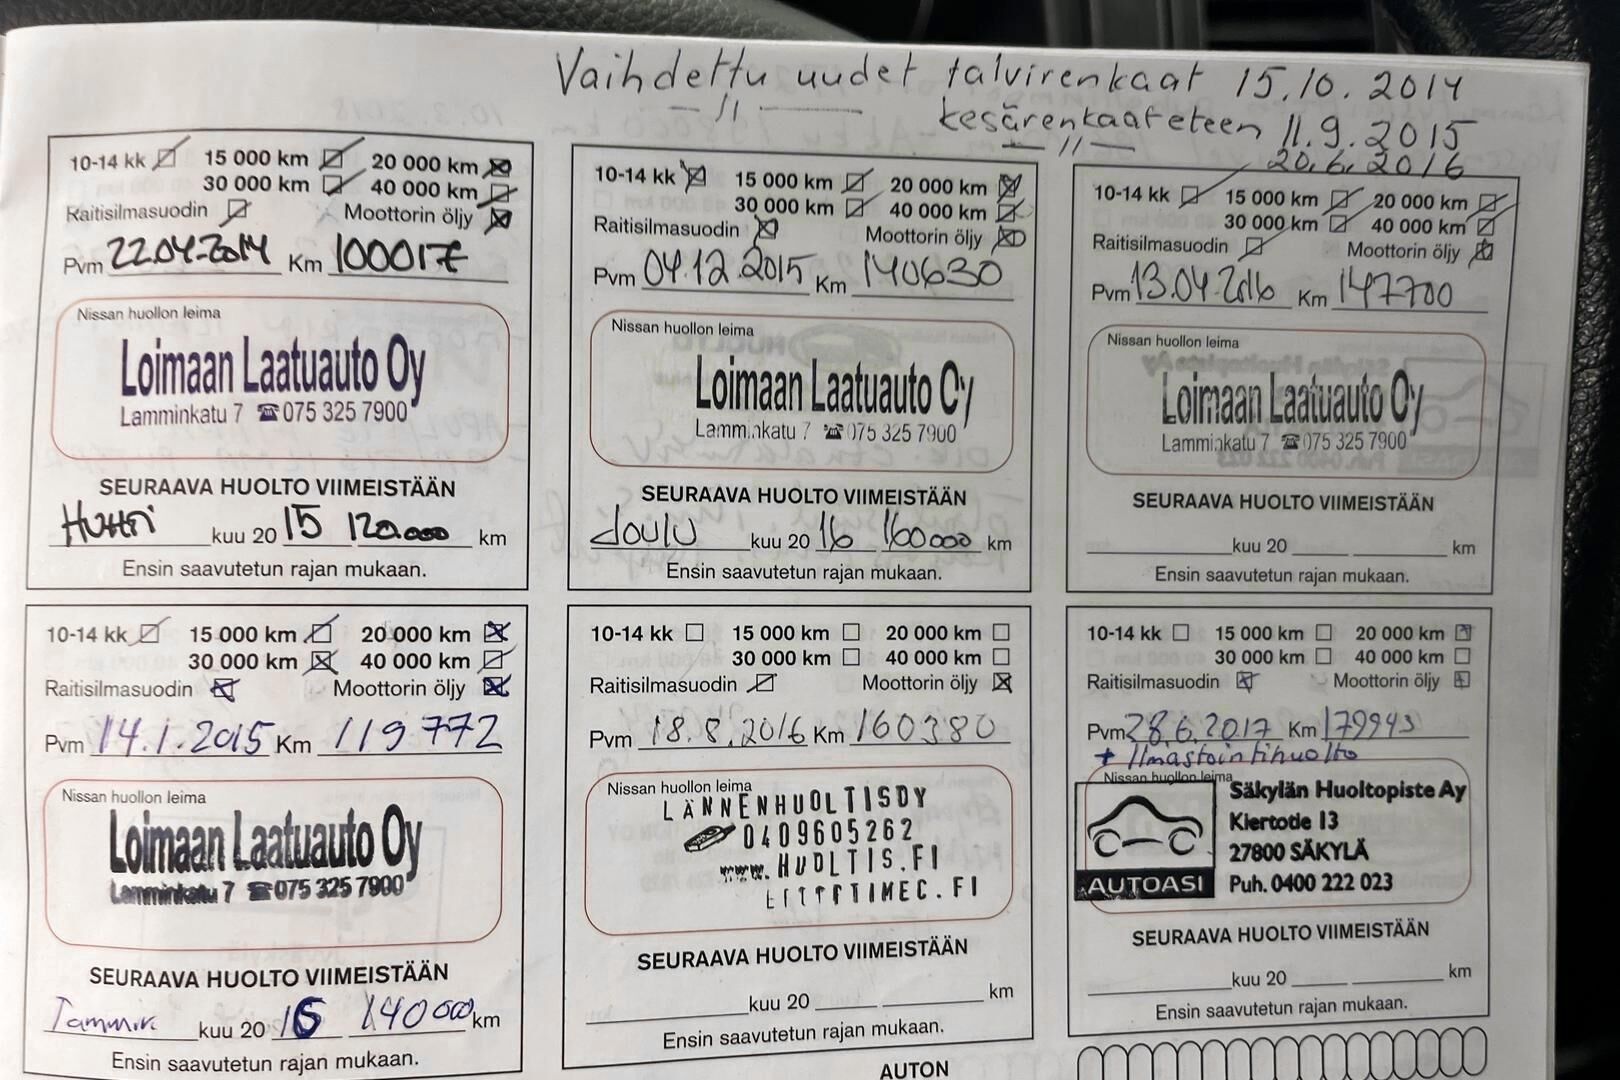 Vaihdettu uudet talvirenkaat 15.10.2014
—"— kesärenkaat eteen 11.9.2015
—"— 20.6.2016
10-14 kk 15 000 km 20 000 km
30 000 km 40 000 km
Raitisilmasuodin Moottorin öljy
Pvm 22.04.2014 Km 100017
Nissan huollon leima
Loimaan Laatuauto Oy
Lamminkatu 7 ☎ 075 325 7900
SEURAAVA HUOLTO VIIMEISTÄÄN
Huhti kuu 20 15 120.000 km
Ensin saavutetun rajan mukaan.
10-14 kk 15 000 km 20 000 km
30 000 km 40 000 km
Raitisilmasuodin Moottorin öljy
Pvm 04.12.2015 Km 140630
Nissan huollon leima
Loimaan Laatuauto Oy
Lamminkatu 7 ☎ 075 325 7900
SEURAAVA HUOLTO VIIMEISTÄÄN
Joulu kuu 20 16 160000 km
Ensin saavutetun rajan mukaan.
10-14 kk 15 000 km 20 000 km
30 000 km 40 000 km
Raitisilmasuodin Moottorin öljy
Pvm 13.04.2016 Km 147700
Nissan huollon leima
Loimaan Laatuauto Oy
Lamminkatu 7 ☎ 075 325 7900
SEURAAVA HUOLTO VIIMEISTÄÄN
kuu 20 km
Ensin saavutetun rajan mukaan.
10-14 kk 15 000 km 20 000 km
30 000 km 40 000 km
Raitisilmasuodin Moottorin öljy
Pvm 14.1.2015 Km 119 772
Nissan huollon leima
Loimaan Laatuauto Oy
Lamminkatu 7 ☎ 075 325 7900
SEURAAVA HUOLTO VIIMEISTÄÄN
kuu 20 16 140 000 km
Ensin saavutetun rajan mukaan.
10-14 kk 15 000 km 20 000 km
30 000 km 40 000 km
Raitisilmasuodin Moottorin öljy
Pvm 18.8.2016 Km 160380
Nissan huollon leima
LÄNNENHUOLTISOY
0409605262
www.HUOLTIS.FI
SEURAAVA HUOLTO VIIMEISTÄÄN
kuu 20 km
Ensin saavutetun rajan mukaan.
10-14 kk 15 000 km 20 000 km
30 000 km 40 000 km
Raitisilmasuodin Moottorin öljy
Pvm 28.6.2017 Km 179943
+ Ilmastointihuolto
Nissan huollon leima
Säkylän Huoltopiste Ay
Kiertotie 13
27800 SÄKYLÄ
AUTOASI Puh. 0400 222 023
SEURAAVA HUOLTO VIIMEISTÄÄN
kuu 20 km
Ensin saavutetun rajan mukaan.
AUTON